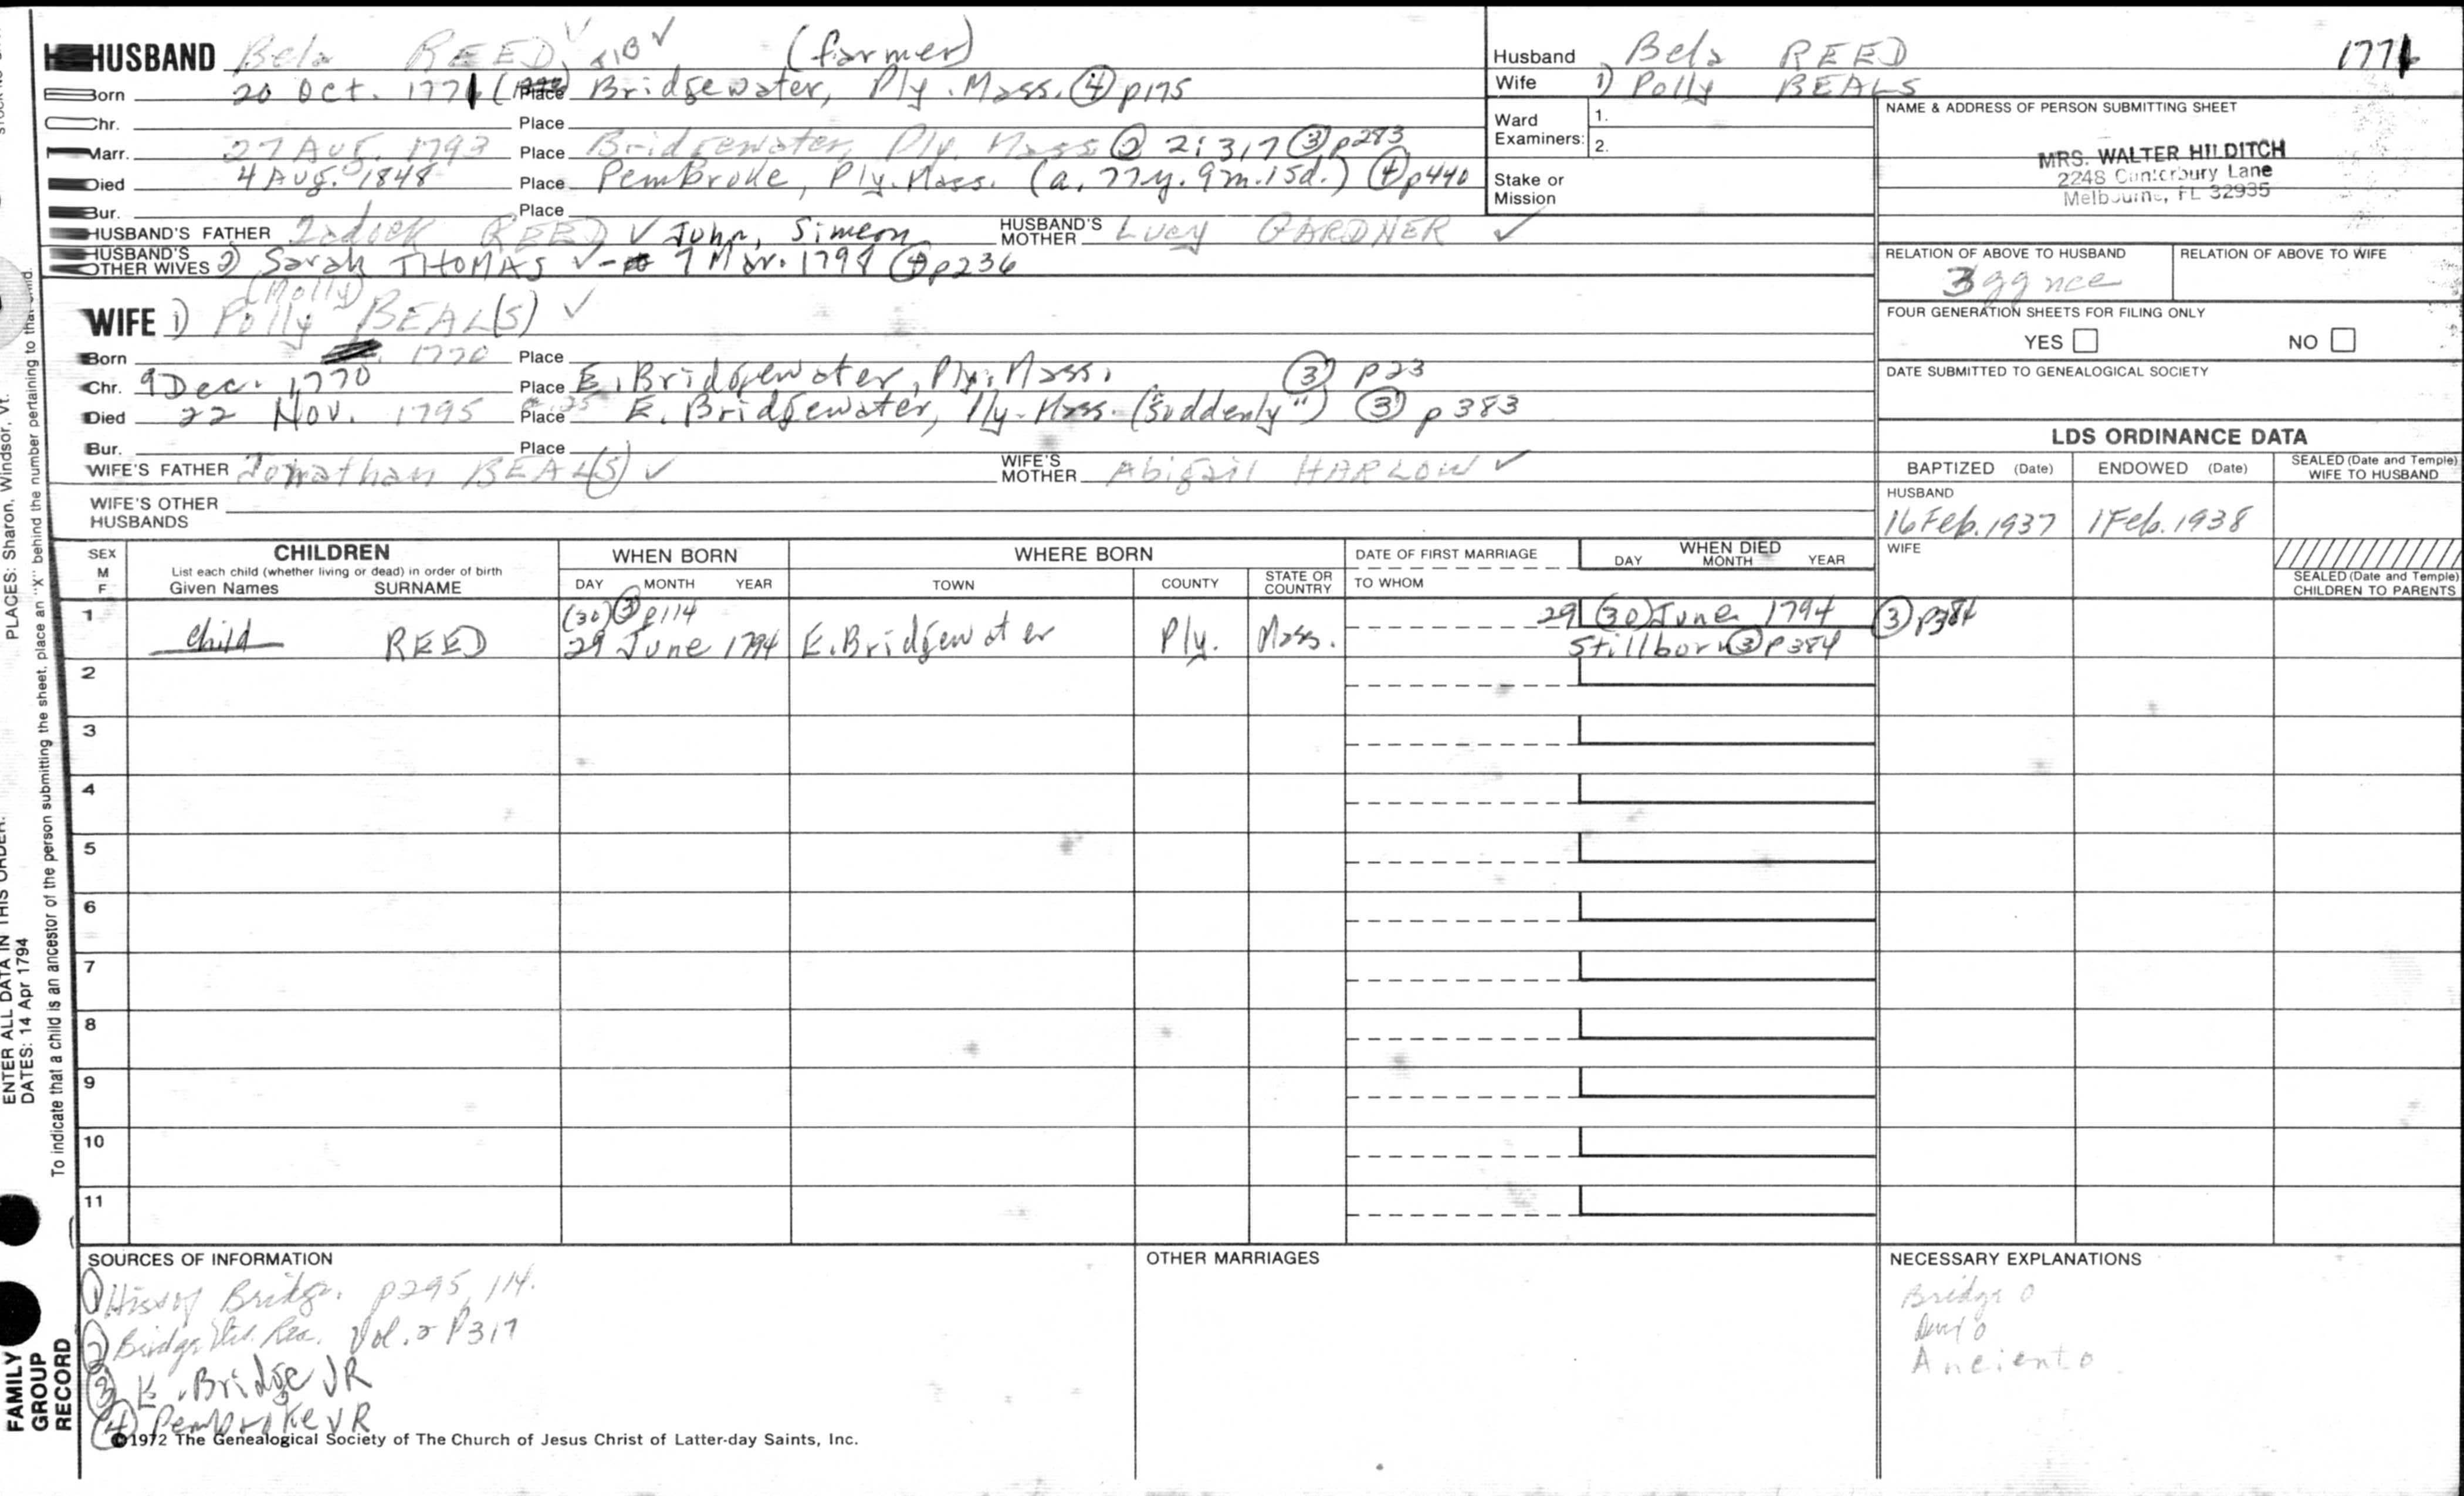 HUSBAND Bela REED (farmer)
Born 20 Oct. 1771 Place Bridgewater, Ply. Mass. ④ p175
Chr. Place
Marr. 27 Aug. 1793 Place Bridgewater, Ply. Mass ② 2:317 ③ p283
Died 4 Aug. 1848 Place Pembroke, Ply. Mass. (a. 77y. 9m. 15d.) ④ p440
Bur. Place
HUSBAND'S FATHER Zadock REED ✓ John, Simeon HUSBAND'S MOTHER Lucy GARDNER ✓
HUSBAND'S OTHER WIVES 2) Sarah THOMAS ✓ - 7 Mar. 1798 ④ p236
(Molly)
WIFE 1) Polly BEAL(S) ✓
Born 1770 Place
Chr. 9 Dec. 1770 Place E. Bridgewater, Ply. Mass. ③ p23
Died 22 Nov. 1795 Place E. Bridgewater, Ply. Mass. ("suddenly") ③ p383
Bur. Place
WIFE'S FATHER Jonathan BEAL(S) ✓ WIFE'S MOTHER Abigail HARLOW ✓
WIFE'S OTHER HUSBANDS
Husband Bela REED 1771
Wife 1) Polly BEALS
Ward Examiners: 1.
2.
Stake or Mission
NAME & ADDRESS OF PERSON SUBMITTING SHEET
MRS. WALTER HILDITCH
2248 Canterbury Lane
Melbourne, FL 32935
RELATION OF ABOVE TO HUSBAND RELATION OF ABOVE TO WIFE
3 gg nce
FOUR GENERATION SHEETS FOR FILING ONLY
YES NO
DATE SUBMITTED TO GENEALOGICAL SOCIETY
LDS ORDINANCE DATA
BAPTIZED (Date) ENDOWED (Date) SEALED (Date and Temple) WIFE TO HUSBAND
HUSBAND
16 Feb. 1937 1 Feb. 1938
WIFE
SEALED (Date and Temple) CHILDREN TO PARENTS
SEX M F CHILDREN WHEN BORN WHERE BORN DATE OF FIRST MARRIAGE WHEN DIED
List each child (whether living or dead) in order of birth
Given Names SURNAME DAY MONTH YEAR TOWN COUNTY STATE OR COUNTRY TO WHOM DAY MONTH YEAR
1 (30) ③ p114 29 (30) June 1794 ③ p384
Child REED 29 June 1794 E. Bridgewater Ply. Mass. Stillborn ③ p384
2
3
4
5
6
7
8
9
10
11
SOURCES OF INFORMATION OTHER MARRIAGES NECESSARY EXPLANATIONS
① Hist of Bridge. p295, 114.
② Bridge Vol. 2 P317
③ E. Bridge VR
④ Pembroke VR
Bridge 0
Ancient 0
©1972 The Genealogical Society of The Church of Jesus Christ of Latter-day Saints, Inc.
FAMILY GROUP RECORD
ENTER ALL DATA IN THIS ORDER:
DATES: 14 Apr 1794
PLACES: Sharon, Windsor, Vt.
To indicate that a child is an ancestor of the person submitting the sheet, place an "X" behind the number pertaining to that child.